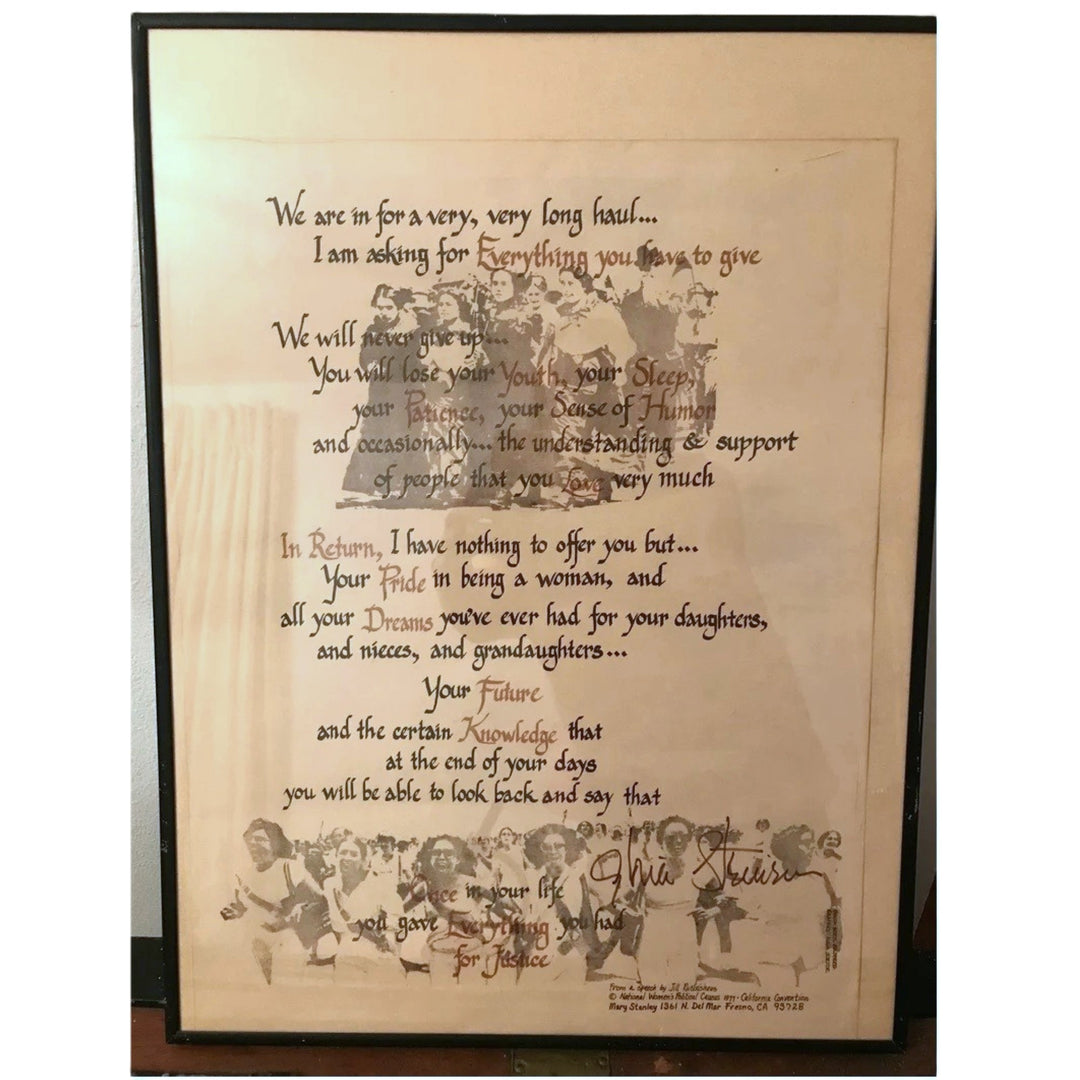 We are in for a very, very long haul...
I am asking for Everything you have to give
We will never give up...
You will lose your Youth, your Sleep,
your Patience, your Sense of Humor
and occasionally... the understanding & support
of people that you Love very much
In Return, I have nothing to offer you but...
Your Pride in being a woman, and
all your Dreams you've ever had for your daughters,
and nieces, and grandaughters...
Your Future
and the certain Knowledge that
at the end of your days
you will be able to look back and say that
Once in your life
you gave Everything you had
for Justice
From a speech by Jill
© National Women's Political Caucus 1977 · California Convention
Mary Stanley 1361 N. Del Mar Fresno, CA 93728